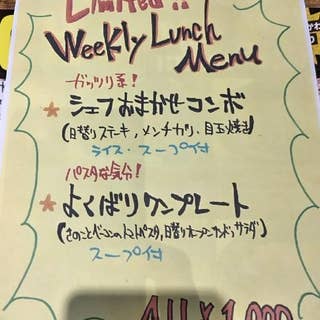 Limited!!
Weekly Lunch
Menu
ガッツリ系!
★シェフおまかせコンボ
(日替りステーキ、メンチカツ、目玉焼き)
ライス・スープ付
パスタな気分!
★よくばりワンプレート
(きのことベーコンのトマトパスタ、日替りオープンサンド、サラダ)
スープ付
ALL ¥1,000